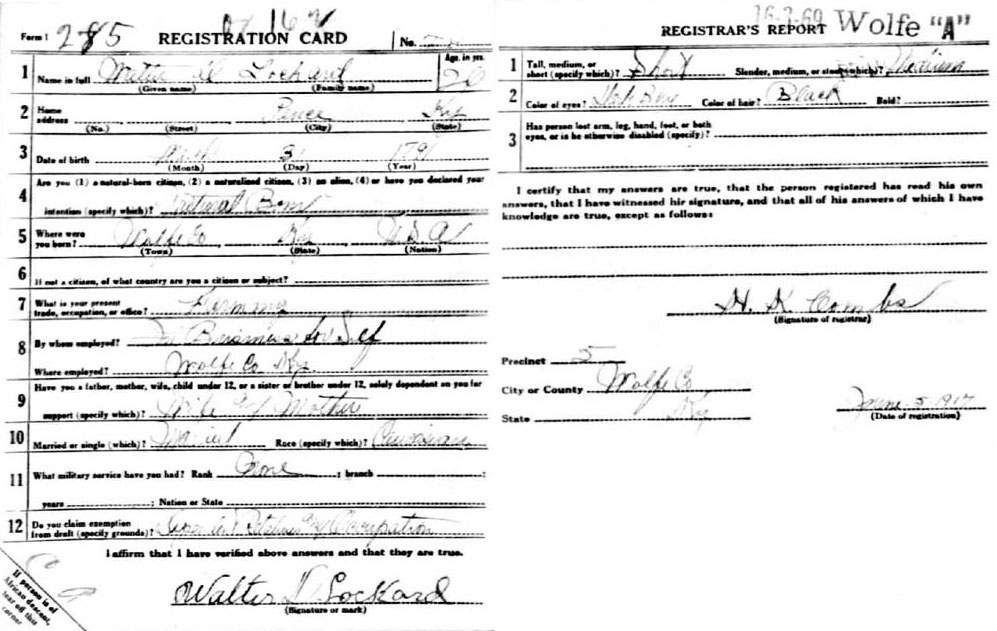 Form 1 285 REGISTRATION CARD No.
1 Name in full Lockard Age, in yrs. 26
(Given name) (Family name)
2 Home address Ky
(No.) (Street) (City) (State)
3 Date of birth 3
(Month) (Day) (Year)
4 Are you (1) a natural-born citizen, (2) a naturalized citizen, (3) an alien, (4) or have you declared your
intention (specify which)? Natural Born
5 Where were you born? Wolfe Co Ky USA
(Town) (State) (Nation)
6 If not a citizen, of what country are you a citizen or subject?
7 What is your present trade, occupation, or office? Farming
8 By whom employed? In Business for Self
Where employed? Wolfe Co Ky.
9 Have you a father, mother, wife, child under 12, or a sister or brother under 12, solely dependent on you for
support (specify which)? Wife Mother
10 Married or single (which)? Married Race (specify which)? Caucasian
11 What military service have you had? Rank None ; branch ;
years ; Nation or State
12 Do you claim exemption from draft (specify grounds)? Occupation
I affirm that I have verified above answers and that they are true.
Walter Lockard
(Signature or mark)
If person is of
African descent,
tear off this
corner
16-3-60 Wolfe "A"
REGISTRAR'S REPORT
1 Tall, medium, or short (specify which)? Short Slender, medium, or stout (which)? Medium
2 Color of eyes? Dark Blue Color of hair? Black Bald?
3 Has person lost arm, leg, hand, foot, or both
eyes, or is he otherwise disabled (specify)?
I certify that my answers are true, that the person registered has read his own
answers, that I have witnessed his signature, and that all of his answers of which I have
knowledge are true, except as follows:
H. K Combs
(Signature of registrar)
Precinct 5
City or County Wolfe Co
State Ky
June 5 1917
(Date of registration)